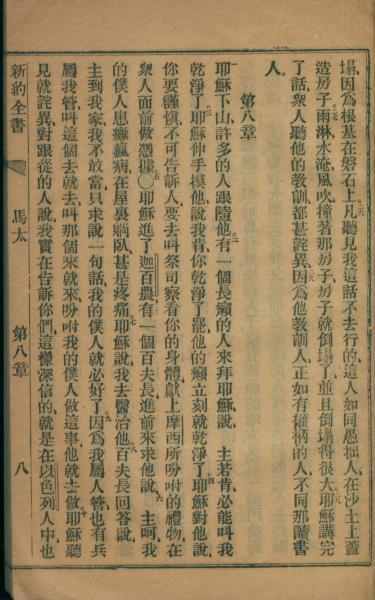 塌、因爲根基在磐石上。凡聽見我這話不去行的、這人如同愚拙人、在沙土上蓋
造房子。雨淋、水淹、風吹、撞著那房子、房子就倒塌了、並且倒塌得很大。耶穌講完
了話、衆人聽他的教訓、都甚詫異。因爲他教訓人、正如有權柄的人、不同那讀書
人。
第八章
耶穌下山、許多的人跟隨他。有一個長癩的人來拜耶穌、說、主若肯、必能叫我
乾淨了。耶穌伸手摸他、說、我肯你乾淨了罷。他的癩立刻就乾淨了。耶穌對他說、
你要謹慎、不可告訴人、要去叫祭司察看你的身體、獻上摩西所吩咐的禮物、在
衆人面前做憑據。○耶穌進了迦百農、有一個百夫長進前來求他說、主呵、我
的僕人患癱瘋病、在屋裏躺臥、甚是疼痛。耶穌說、我去醫治他。百夫長回答說、
主到我家、我不敢當、只求說一句話、我的僕人就必好了。因爲我屬人管、也有兵
屬我管、叫這個去就去、叫那個來就來、吩咐我的僕人做這事、他就去做。耶穌聽
見就詫異、對跟從的人說、我實在告訴你們、這樣深信的、就是在以色列人中、也
新約全書 馬太 第八章 八